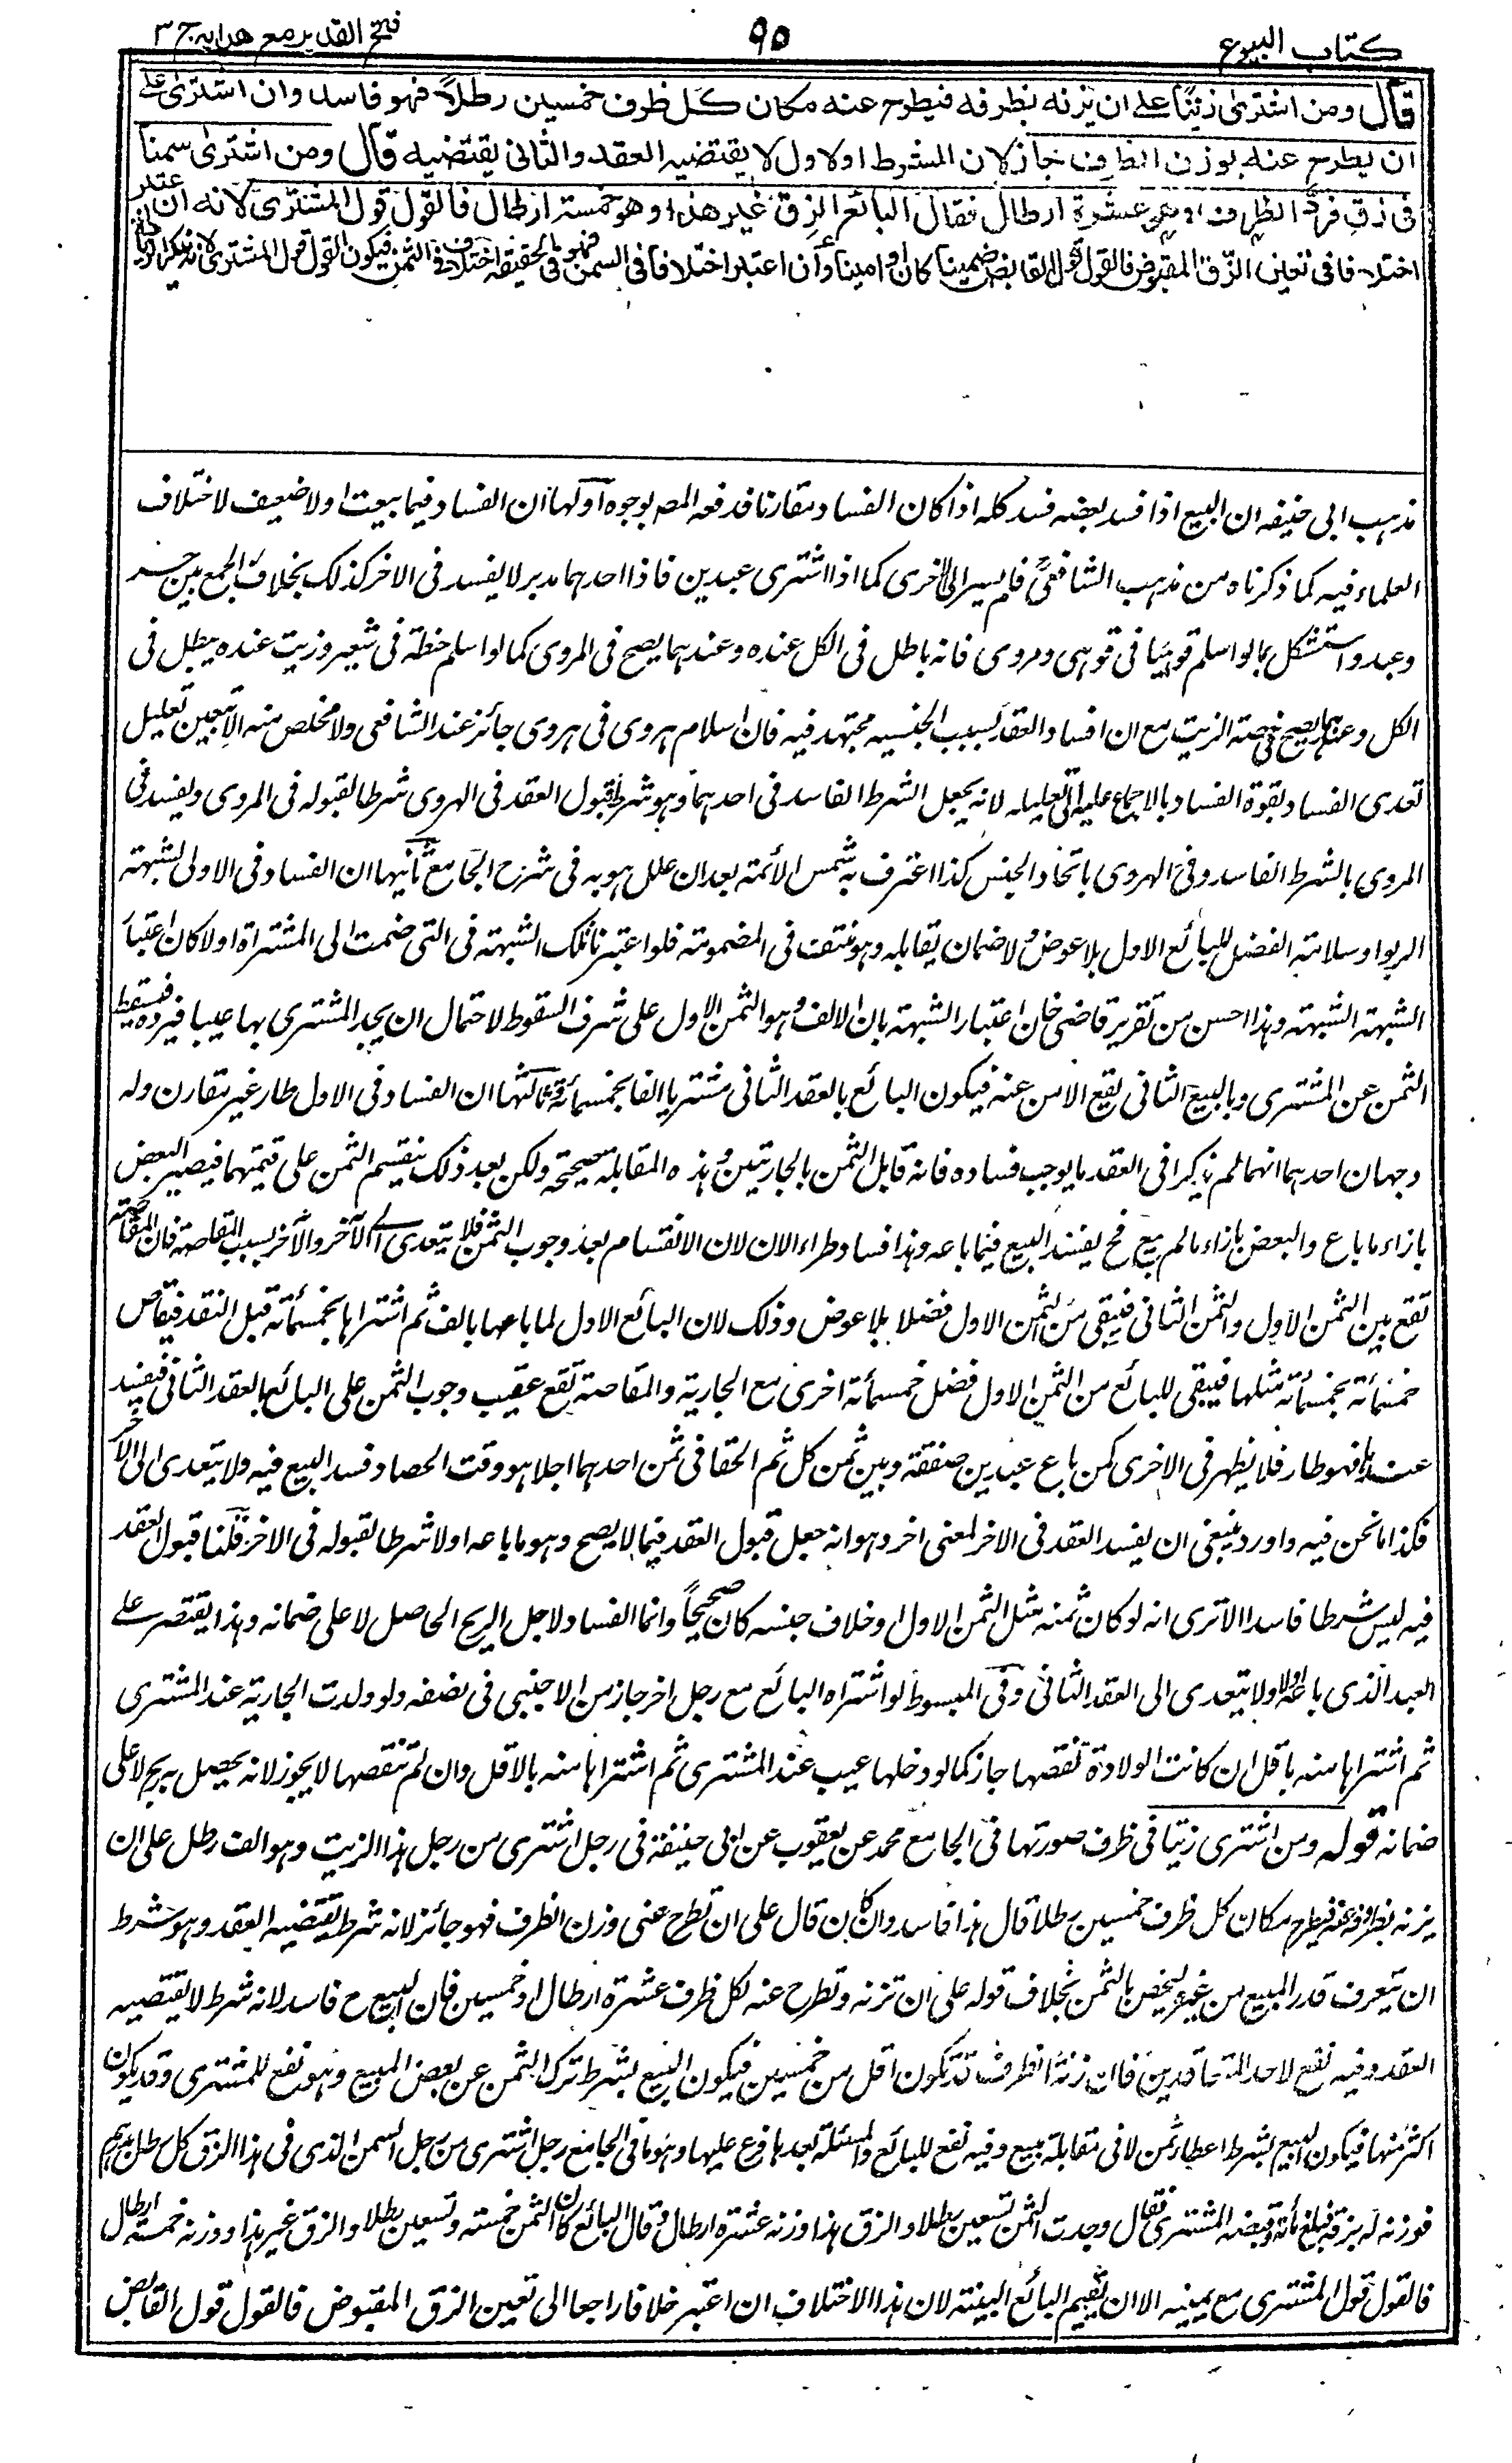 كتاب البيوع
٩٥
فتح القدير مع هدايه ج ٣
قال ومن اشترى زيتا على ان يزنه بظرفه فيطرح عنه مكان كل ظرف خمسين رطلاً فهو فاسد وان اشترى على
ان يطرح عنه بوزن الظرف جاز لان الشرط الاول لا يقتضيه العقد والثاني يقتضيه قال ومن اشترى سمنا
في زق فرد الظرف وهو عشرة ارطال فقال البائع الزق غير هذا وهو خمسة ارطال فالقول قول المشترى لانه ان اعتبر
اختلافا في تعين الزق المقبوض فالقول قول القابض ضمينا كان او امينا وان اعتبر اختلافا في السمن فهو في الحقيقة اختلاف في الثمن فيكون القول قول المشترى لانه ينكر الزيادة
مذهب ابى حنيفه ان البيع اذا فسد بعضه فسد كله اذا كان الفساد مقارنا فدفعه المص بوجوه اولها ان الفساد فيما بيعت اولا ضعيف لاختلاف
العلماء فيه كما ذكرناه من مذهب الشافعى فلم يسر الى الاخرى كما اذا اشترى عبدين فاذا احدهما مدبر لا يفسد فى الاخر كذلك بخلاف الجمع بين حر
وعبد واستشكل بما لو اسلم قوهيا فى قوهى ومروى فانه باطل فى الكل عنده وعندهما يصح فى المروى كما لو اسلم حنطة فى شعير وزيت عنده يبطل فى
الكل وعندهما يصح فى حصة الزيت مع ان افساد العقد بسبب الجنسيه مجتهد فيه فان اسلام هروى فى هروى جائز عند الشافعى ولا مخلص منه الا بتعيين تعليل
تعدى الفساد بقوة الفساد بالاجماع عليه الى تعليله لانه يجعل الشرط الفاسد فى احدهما وهو شرط قبول العقد فى الهروى شرطا لقبوله فى المروى ويفسد فى
المروى بالشرط الفاسد وفى الهروى باتحاد الجنس كذا اعترف به شمس الأئمة بعد ان علل هو به فى شرح الجامع ثانيها ان الفساد فى الاولى لشبهة
الربوا وسلامة الفضل للبائع الاول بلا عوض ولا ضمان يقابله وهو منتف فى المضمومة فلو اعتبرنا تلك الشبهة فى التى ضمت الى المشتراة اولا كان اعتبار
الشبهة الشبهة وهذا احسن من تقرير قاضى خان اعتبار الشبهة بان الالف وهو الثمن الاول على شرف السقوط لاحتمال ان يجد المشترى بها عيبا فيرده فيسقط
الثمن عن المشترى وبالبيع الثانى يقع الامن عنه فيكون البائع بالعقد الثانى مشتريا الفا بخمسمأة وثالثها ان الفساد فى الاول طار غير مقارن وله
وجهان احدهما انهما لم يذكرا فى العقد ما يوجب فساده فانه قابل الثمن بالجاريتين وهذه المقابلة صحيحة ولكن بعد ذلك ينقسم الثمن على قيمتهما فيصير البعض
بازاء ما باع والبعض بازاء ما لم يبع فح يفسد البيع فيما باعه وهذا فساد طراء الان لان الانقسام بعد وجوب الثمن فلا يتعدى الى الآخر والآخر بسبب المقاصة فان المقاصة
تقع بين الثمن الاول والثمن الثانى فيبقى من الثمن الاول فضلا بلا عوض وذلك لان البائع الاول لما باعها بالف ثم اشتراها بخمسمأته قبل النقد فيقاص
خمسمأتة بخمسمأتة مثلها فيبقى للبائع من الثمن الاول فضل خمسمأتة اخرى مع الجارية والمقاصة تقع عقيب وجوب الثمن على البائع بالعقد الثانى فيفسد
عندها فهو طار فلا يظهر فى الاخرى كمن باع عبدين صفقة وبين ثمن كل ثم الحقا فى ثمن احدهما اجلا هو وقت الحصاد فسد البيع فيه ولا يتعدى الى الآخر
فكذا ما نحن فيه واورد ينبغى ان يفسد العقد فى الاخر لمعنى اخر وهو انه جعل قبول العقد فيما لا يصح وهو ما باعه اولا شرطا لقبوله فى الاخر قلنا قبول العقد
فيه ليس شرطا فاسدا الا ترى انه لو كان ثمنه مثل الثمن الاول او خلاف جنسه كان صحيحاً وانما الفساد لاجل الربح الحاصل لا على ضمانه وهذا يقتصر على
العبد الذى باعه اولا ولا يتعدى الى العقد الثانى وفى المبسوط لو اشتراه البائع مع رجل اخر جاز من الاجنبى فى نصفه ولو ولدت الجارية عند المشترى
ثم اشتراها منه باقل ان كانت الولادة نقصها جاز كما لو دخلها عيب عند المشترى ثم اشتراها منه بالاقل وان لم تنقصها لا يجوز لانه يحصل به ربح لا على
ضمانه قوله ومن اشترى زيتا فى ظرف صورتها فى الجامع محمد عن يعقوب عن ابى حنيفة فى رجل اشترى من رجل هذا الزيت وهو الف رطل على ان
يزنه بظروفه فيطرح عنه مكان كل ظرف خمسين رطلا قال هذا فاسد وان كان قال على ان تطرح عنى وزن الظرف فهو جائز لانه شرط يقتضيه العقد وهو شرط
ان يتعرف قدر المبيع من غيره ليخص بالثمن بخلاف قوله على ان تزنه وتطرح عنه لكل ظرف عشرة ارطال او خمسين فان البيع ح فاسد لانه شرط لا يقتضيه
العقد وفيه نفع لاحد المتعاقدين فان زنة الظرف قد تكون اقل من خمسين فيكون البيع بشرط ترك الثمن عن بعض المبيع وهو نفع للمشترى وقد يكون
اكثر منها فيكون البيع بشرط اعطاء ثمن لا فى مقابلة مبيع وفيه نفع للبائع والمسئلة بعدها فرع عليها وهو ما فى الجامع رجل اشترى من رجل السمن الذى فى هذا الزق كل رطل بدرهم
فوزنه له بزقه فبلغ مأة وقبضه المشترى فقال وجدت الثمن تسعين رطلا والزق هذا وزنه عشرة ارطال وقال البائع كان الثمن خمسة وتسعين رطلا والزق غير هذا ووزنه خمسة ارطال
فالقول قول المشترى مع يمينه الا ان يقيم البائع البينة لان هذا الاختلاف ان اعتبر خلافا راجعا الى تعين الزق المقبوض فالقول قول القابض